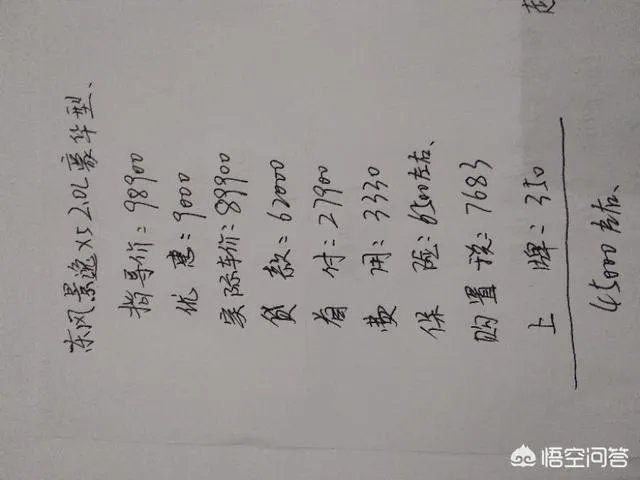 东风景逸X5 2.0L豪华型、
指导价：98900
优惠：9000
实际车价：89900
贷款：62000
首付：27900
费用：3330
保险：6500左右、
购置税：7683
上牌：350
45000左右、
悟空问答